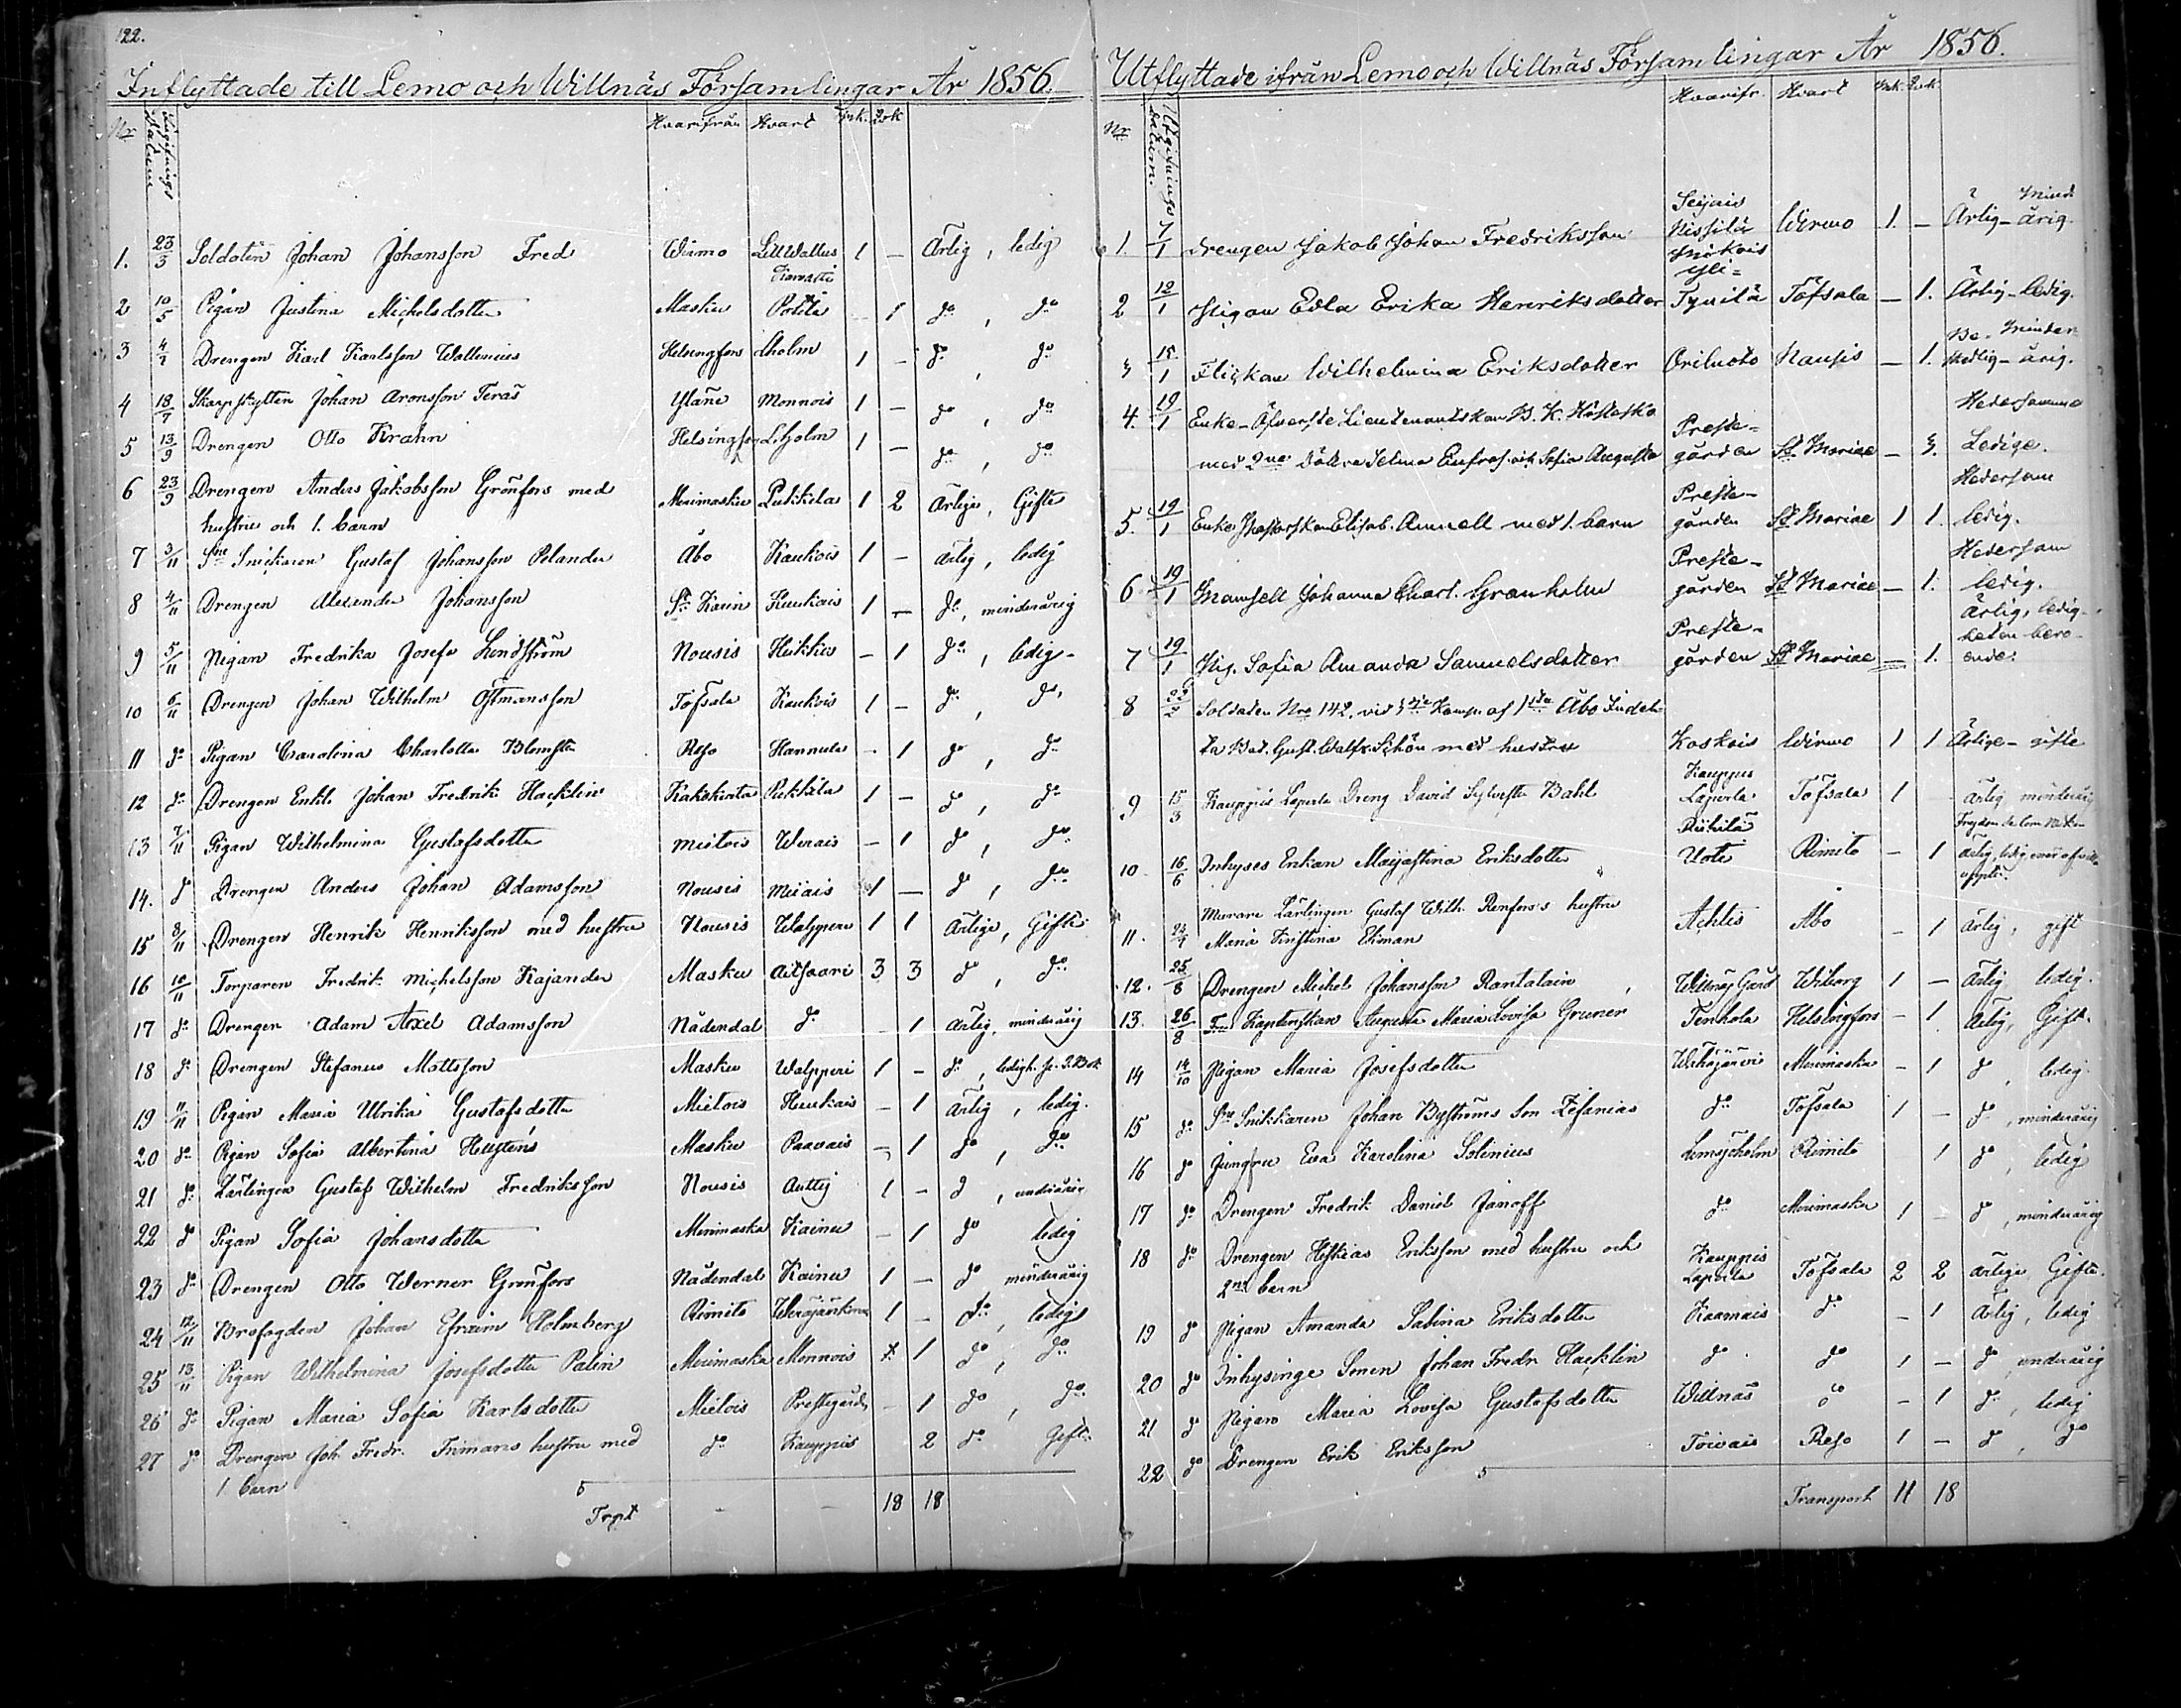 122.
Inflyttade till Lemo och Willnäs Församlingar År 1856.
No Hvarifrån Hvart Mk. Qvk
1. 23/3 Soldaten Johan Johansson Fred Wirmo Lill Wallus 1 — Ärlig, ledig
2 10/5 Pigan Justina Michelsdotter Masku 1 do, do
3 Drengen Karl Karlsson Wallenius Helsingfors Lholm 1 - do, do
4 18/7 Skarpskytten Johan Aronsson Teräs Yläne Monnois 1 - do, do
5 13/9 Drengen Otto Krahn Helsingfors Lholm 1 - do, do
6 23/9 Drengen Anders Jakobsson Grönfors med Merimasku Pukkila 1 2 Ärlige, Gifte
hustru och 1. barn
7 3/11 Sne Snickaren Gustaf Johansson Polander Åbo Kaukois 1 - ärlig, ledig
8 4/11 Drengen Alexander Johansson St Karin Kuukois 1 - do, minderårig
9 5/11 Pigan Fredrika Josefa Lindström Nousis - 1 do, ledig
10 6/11 Drengen Johan Wilhelm Östmansson Töfsala Kaukois 1 - do, do
11 do Pigan Carolina Charlotta Blomster Reso Hannula - 1 do, do
12 do Drengen Enkl. Johan Fredrik Hacklin Kakskerta Pukkila 1 - do, do
13 7/11 Pigan Wilhelmina Gustafsdotter Mietois Werais - 1 do, do
14. do Drengen Anders Johan Adamsson Nousis 1 - do, do
15 8/11 Drengen Henrik Henriksson med hustru Nousis Walpperi 1 1 Ärlige, Gifte
16 10/11 Torparen Fredrik Michelsson Kajander Masku Aitsaari 3 3 do, do
17 do Drengen Adam Axel Adamsson Nådendal do - 1 ärlig, minderårig
18 do Drengen Stefanus Mattsson Masku Walpperi 1 - do,
19 11/11 Pigan Maria Ulrika Gustafsdotter Mietois Kuukois - 1 Ärlig, ledig.
20 do Pigan Sofia Albertina Masku Paavais - 1 do, do
21 do Lärlingen Gustaf Wilhelm Fredriksson Nousis Autty 1 - do,
22 do Pigan Sofia Johansdotter Merimasku Kainu - 1 do ledig
23 do Drengen Otto Werner Grönfors Nådendal Kainu 1 - do minderårig
24 12/11 Brofogden Johan Efraim Holmberg Rimito 1 - do, ledig
25 13/11 Pigan Wilhelmina Josefsdotter Palin Merimasku Monnois 1 do, do
26 do Pigan Maria Sofia Karlsdotter Mietois Prestegård - 1 do, do
27 do Drengen Joh. Fredr. Frimans hustru med do Kauppis 2 do Gift.
1 barn
Trpt 18 18
Utflyttade ifrån Lemo och Willnäs Församlingar År 1856.
No Utgifnings datum. Hvarifr. Hvart Mk. Qvk.
1. 7/1 Drengen Jakob Johan Fredriksson Nissilä Wirmo 1. — Ärlig - Mindårig.
2 12/1 Pigan Edla Erika Henriksdotter Yli-Tynilä Töfsala — 1. Ärlig - ledig.
3 15/1 Flickan Wilhelmina Eriksdotter Oriluoto Nausis — 1. Be-skedlig - Minderårig.
4. 19/1 Enke-Öfverste Lieutenantskan Hedersamma
med 2ne döttra Selma Eufros. och Sofia Augusta Preste-gården St. Mariae — 3. Ledige.
5. 19/1 Enke Elisab. Amnell med 1. barn Preste-gården St. Mariae 1 1. Hedersam ledig.
6 19/1 Mamsell Johanna Charl. Granholm Preste-gården St. Mariae — 1. Hedersam ledig.
7 19/1 Pig. Sofia Amanda Samuelsdotter Preste-gården St. Mariae — 1. Ärlig, ledig-heten bero-ende.
8 22/2 Soldaten Nro 142. vid Komp. af 1sta Åbo Indel-
ta Bat. Gust. Walfr. Schön med hustru Koskois Wirmo 1 1 Ärlige - gifte
9 15/3 Kauppis Laperla Dreng David Sylvester Dahl Kauppis Laperla Töfsala 1 ärlig minderårig
10 16/6 Inhyses Enkan Majastina Eriksdotter Uoti Rimito - 1
11. 24/7 Murare Lärlingen Gustaf Wilh. Renfors's hustru
Maria Kristina Ekman Achtis Åbo - 1 ärlig, gift
12. 25/8 Drengen Michel Johansson Rantalain Willnäs Gård Wiborg 1 — Ärlig ledig.
13. 26/8 Fru Kaptenskan Augusta Maria Lovisa Gruner Tenhola Helsingfors - 1 Ärlig, Gift.
14 14/10 Pigan Maria Josefsdotter Merimasku - 1 do, ledig
15 do Sne Snickaren Johan Byströms son Zefanias do Töfsala 1 - do, minderårig
16 do Jungfru Eva Karolina Solenius Lemsjöholm Rimito 1 do, ledig
17 do Drengen Fredrik Daniel Janoff do Merimasku 1 - do, minderårig
18 do Drengen Heskias Eriksson med hustru och Kauppis
2ne barn Laperla Töfsala 2 2 ärlige Gifte.
19 do Pigan Amanda Sabina Eriksdotter Kaamais do - 1 Ärlig, ledig
20 do Inhysinge Sonen Johan Fredr. Hacklin do do 1 - do
21 do Pigan Maria Lovisa Gustafsdotter Willnäs do - 1 do, ledig
22 do Drengen Erik Eriksson Toivais Reso 1 - do, do
Transport 11 18